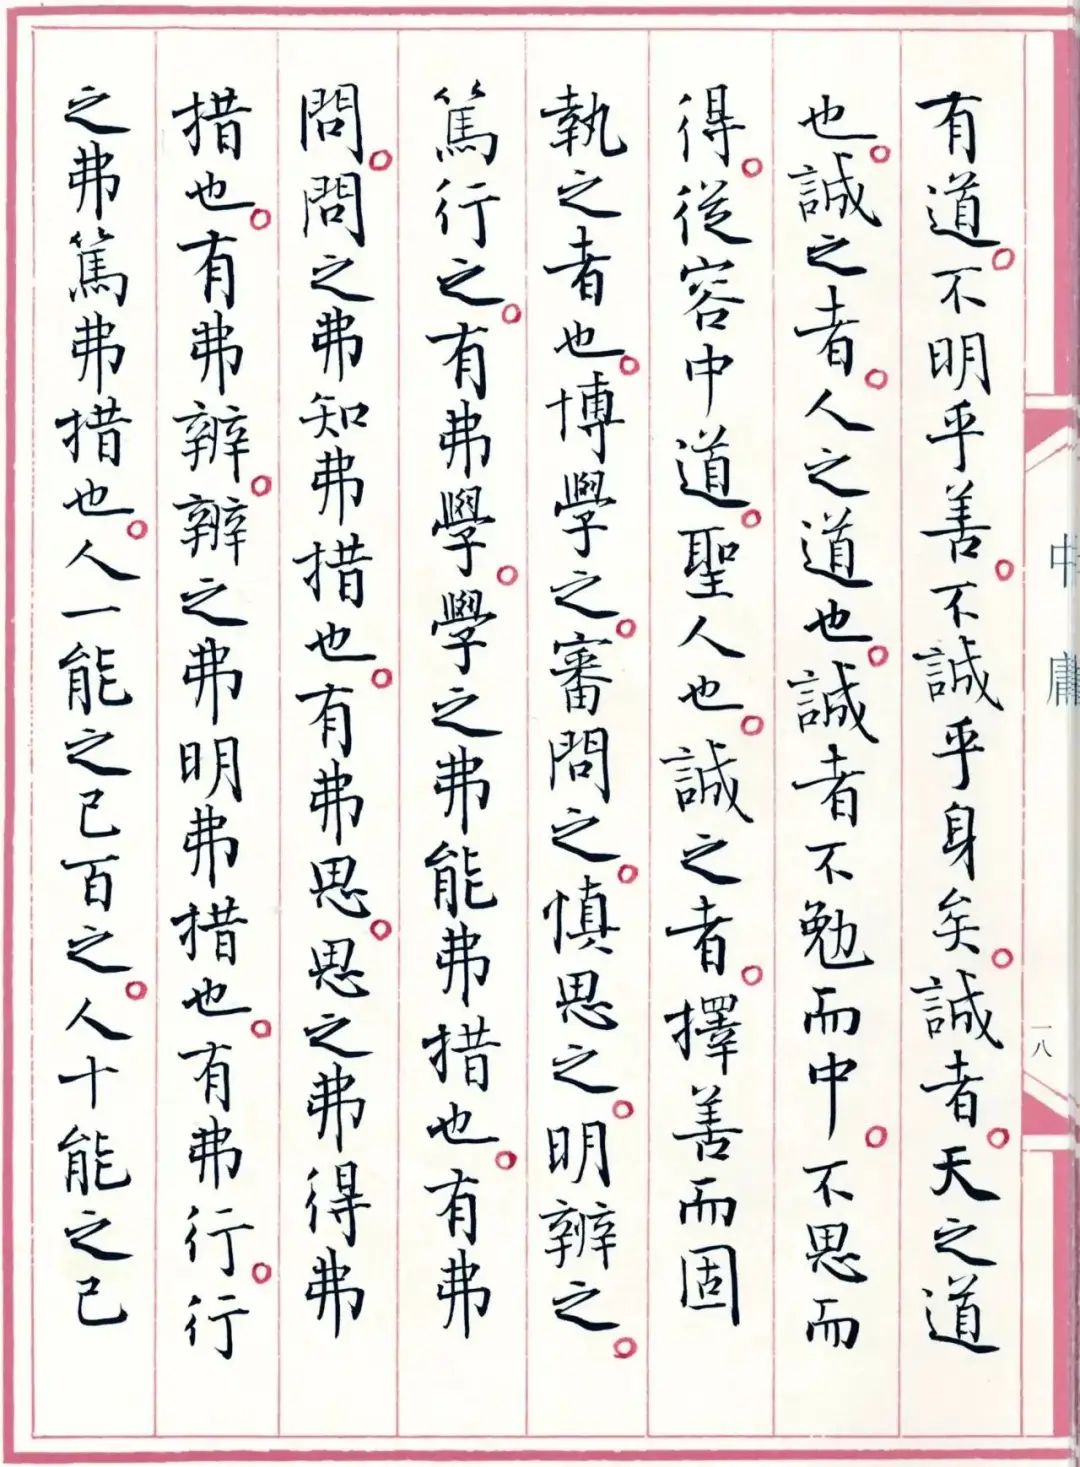 中庸
一八
有道。不明乎善。不誠乎身矣。誠者。天之道
也。誠之者。人之道也。誠者不勉而中。不思而
得。從容中道。聖人也。誠之者。擇善而固
執之者也。博學之。審問之。慎思之。明辨之。
篤行之。有弗學。學之弗能弗措也。有弗
問。問之弗知弗措也。有弗思。思之弗得弗
措也。有弗辨。辨之弗明弗措也。有弗行。行
之弗篤弗措也。人一能之己百之。人十能之己